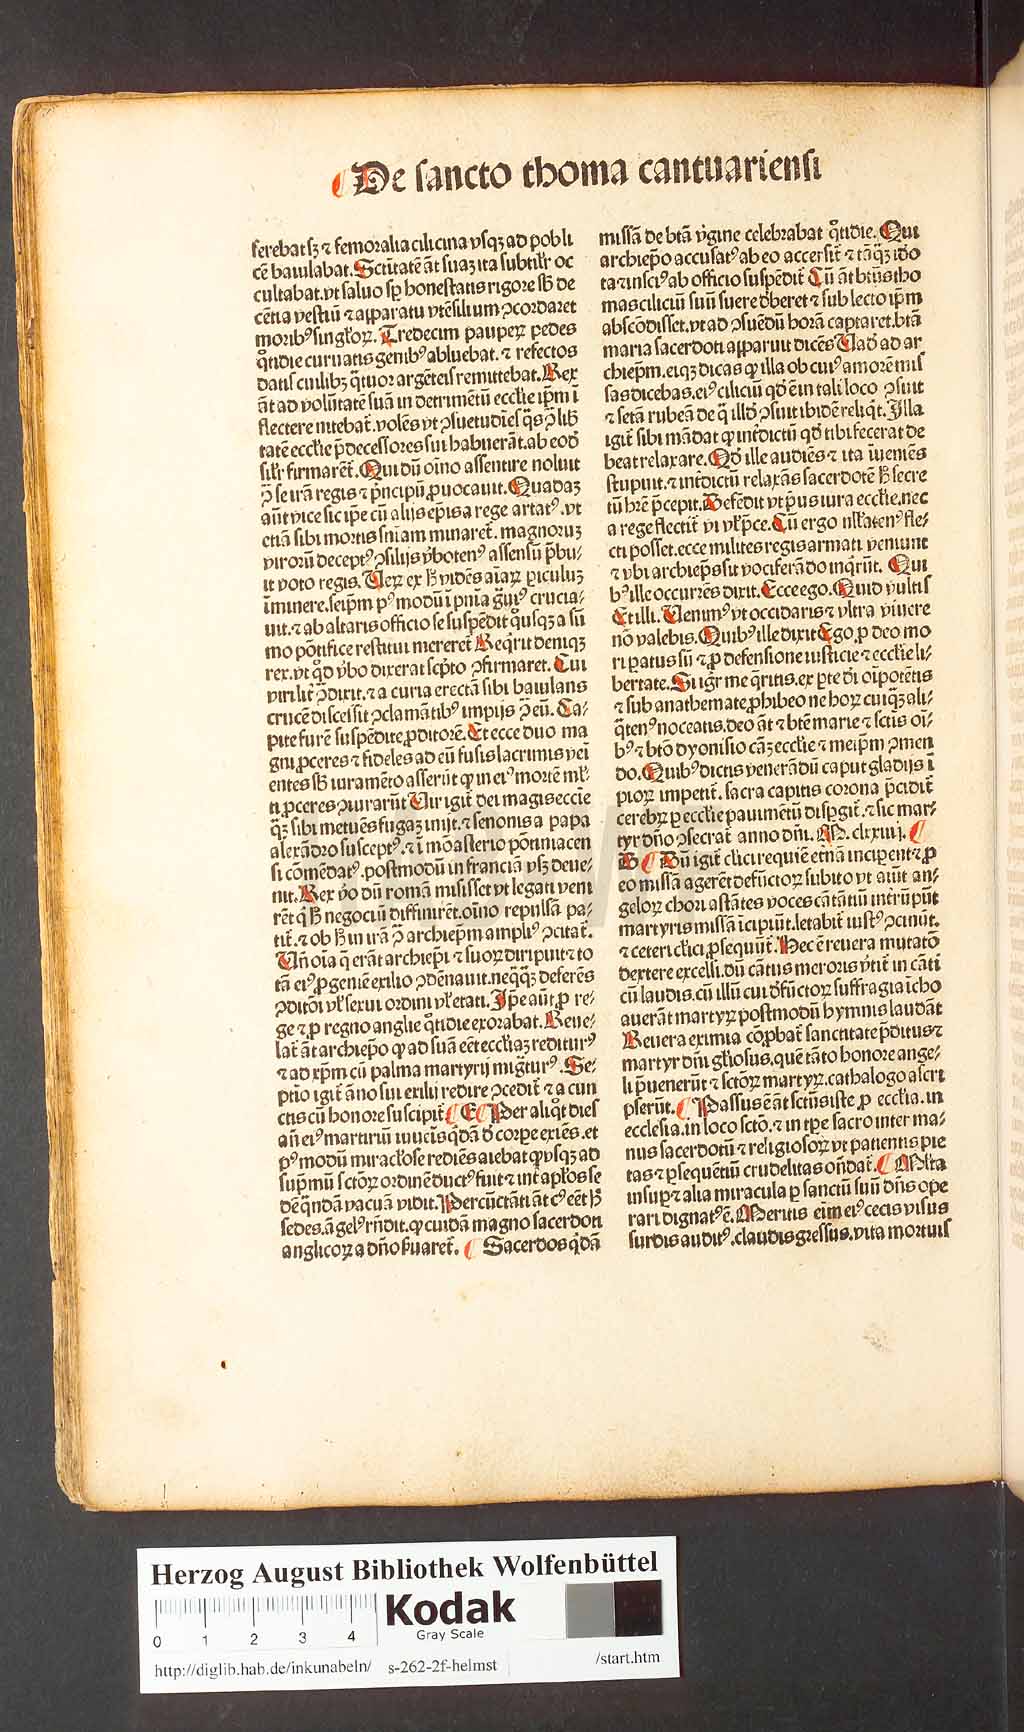 De sancto thoma cantuariensi
ferebat sꝫ ⁊ femoralia cilicina vsqꝫ ad pobli
cē baiulabat. Sctītatē āt suaꝫ ita subtilr̄ oc
cultabat. vt saluo sp̄ honestatis rigore sb̄ de
cētia vestiū ⁊ apparatu vtēsilium ꝯcordaret
moribꝰ singl̓oꝝ. Tredecim pauperꝝ pedes
q̊tidie curuatis genibꝰ abluebat. ⁊ refectos
datis cuilibꝫ q̓tuor argēteis remittebat. Rex
āt ad volūtatē suā in detrimētū eccl̓ie ip̄m ī
flectere nitebat̄. volēs vt ꝯsuetudīes q̄s ꝯ̄ lib̓
tatē eccl̓ie p̄decessores sui habuerāt. ab eod̄
silr̄ firmarēt̄. Qui dū oīno assentire noluit
ꝯ̄ se irā regis ⁊ p̓ncipū ꝓuocauit. Quadaꝫ
aūt vice sic ip̄e cū alijs ep̄is a rege artatꝰ. vt
etiā sibi mortis sn̄iam minarēt̄. magnoruꝫ
viroꝝ deceptꝰ ꝯsilijs v̓botenꝰ assensū p̄bu-
it voto regis. Ueꝝ ex h̄ vidēs aīaꝝ ꝑiculuꝫ
īminere. seip̄m pꝰ modū ī pn̄ia g̓uiꝰ crucia-
uit. ⁊ ab altaris officio se suspēdit q̊usqꝫ a sū
mo pōtifice restitui mereret̄ Req̓rit deniqꝫ
rex. vt qd̓ v̓bo dixerat scp̄to ꝯfirmaret. Cui
virilit̄ ꝯ̄dixit. ⁊ a curia erectā sibi baiulans
crucē discessit ꝯclamātibꝰ impijs ꝯ̄ eū. Ca-
pite furē suspēdite ꝓditorē. Et ecce duo ma
gni ꝓceres ⁊ fideles ad eū fusis lacrimis vei̅
entes sb̄ iuramēto asserūt ꝙ in eiꝰ mortē ml̓
ti ꝓceres ꝯiurarūt Uir igit̄ dei magis eccl̓ie
q̄ꝫ sibi metuēs fugaꝫ inijt. ⁊ senonis a papa
alexādro susceptꝰ. ⁊ ī mōasterio pōtiniacen
si cōmēdatꝰ. postmodū in franciā vsqꝫ deue-
nit. Rex v̓o dū romā misisset vt legati veni
rēt q̓ h̄ negociū diffinirēt. oīno repulsā pa-
tit̄. ⁊ ob h̄ in irā ꝯ̄ archiep̄m ampliꝰ ꝯcitat̄.
Un̄ oīa q̄ erāt archiep̄i ⁊ suoꝝ diripuit ⁊ to
tā eiꝰ ꝓgeniē exilio ꝯdēnauit. neq̄qꝫ deferēs
ꝯditōi vl̓ sexui ordini vl̓ etati. Ip̄e aūt ꝓ re-
ge ⁊ ꝓ regno anglie q̊tidie exorabat. Reue-
lat̄ āt archiep̄o ꝙ ad suā eēt eccl̓iaꝫ rediturꝰ
⁊ ad xp̄m cū palma martyrij mig̓turꝰ. Se-
ptīo igit̄ āno sui exilij redire ꝯcedit̄ ⁊ a cun
ctis cū honore suscipit̄ E Per aliq̊t dies
an̄ eiꝰ martiriū iuueīs q̓dā d̓ corpe exiēs. et
pꝰ modū mirac̓lose rediēs aiebat ꝙ vsqꝫ ad
sup̄mū sctōꝝ ordinē ductꝰ fuit ⁊ int̄ apl̓os se
dē q̄ndā vacuā vidit. Percūctāti āt cꝰ eēt h̄
sedes. āgelꝰ rn̄dit. ꝙ cuidā magno sacerdoti
anglicoꝝ a dn̄o ẜuaret̄. Sacerdos q̓dā
missā de btā v̓gine celebrabat q̊tidie. Qui
archiep̄o accusatꝰ ab eo accersit̄ ⁊ tāq̄ꝫ idio
ta ⁊ insciꝰ ab officio suspēdit̄ Cū āt btūs tho
mas ciliciū suū suere d̓beret ⁊ sub lecto ip̄m
abscōdisset. vt ad ꝯsuēdū horā captaret. btā
maria sacerdoti apparuit dicēs Uade ad ar
chiep̄m. eiqꝫ dicas ꝙ illa ob cuiꝰ amorē mis
sas dicebas. eiꝰ ciliciū qd̓ ē in tali loco ꝯsuit
⁊ setā rubeā de q̄ illd̓ ꝯsuit ibidē reliq̓t. Illa
igit̄ sibi mādat ꝙ int̄dictū qd̓ tibi fecerat de
beat relaxare. Qd̓ ille audiēs ⁊ ita īueniēs
stupuit. ⁊ int̄dictū relaxās sacerdotē h̄ secre
tū hr̄e p̄cepit. Defēdit vt p̓us iura eccl̓ie. nec
a rege flectit̄ vi vl̓ p̄ce. Cū ergo nl̓latenꝰ fle-
cti posset. ecce milites regis armati veniunt
⁊ vbi archiep̄s sit vociferādo inq̓rūt. Qui
bꝰ ille occurrēs dixit. Ecce ego. Quid vultis
Et illi. Uenimꝰ vt occidaris ⁊ vltra viuere
nō valebis. Quibꝰ ille dixit Ego ꝓ deo mo
ri ꝑatus sū ⁊ ꝓ defensione iusticie ⁊ eccl̓ie li-
bertate. Si igr̄ me q̓ritis. ex ꝑte dī oīpotētis
⁊ sub anathemate ꝓhibeo ne hoꝝ cuiq̄ꝫ ali-
q̓tenꝰ noceatis. deo āt ⁊ btē marie ⁊ sctis oī-
bꝰ ⁊ btō dyonisio cāꝫ eccl̓ie ⁊ meip̄m ꝯmen
do. Quibꝰ dictis venerādū caput gladijs ī
pioꝝ impetit̄. sacra capitis corona p̄cidit̄
cerebꝝ ꝑ eccl̓ie pauimētū disꝑgit̄. ⁊ sic mar-
tyr dn̄o ꝯsecrat̄ anno dn̄i. M. clxxiiij.
D Dū igit̄ cl̓ici requiē et̓nā inciperēt ⁊ ꝓ
eo missā agerēt defūctoꝝ subito vt aiūt an-
geloꝝ chori astātes voces cātātiū int̓rūpūt
martyris missā īcipiūt. letabit̄ iustꝰ ꝯcinūt.
⁊ ceteri cl̓ici ꝓsequūt̄. Hec ē reuera mutatō
dextere excelsi. dū cātus meroris v̓tit̄ in cāti
cū laudis. cū illū cui d̓fūctoꝝ suffragia īcho
auerāt martyꝝ postmodū hymnis laudāt
Reuera eximia cōꝓbat̄ sanctitate p̄ditus ⁊
martyr dn̄i gl̓iosus. quē tāto honore ange-
li p̄uenerūt ⁊ sctōꝝ martyꝝ. cathalogo ascri
pserūt. Passus ē āt sctūs iste ꝓ eccl̓ia. in
ecclesia. in loco sctō. ⁊ in tꝑe sacro inter ma-
nus sacerdotū ⁊ religiosoꝝ vt patientis pie
tas ⁊ ꝑsequētiū crudelitas on̄dat̄. Ml̓ta
insuꝑ ⁊ alia miracula ꝑ sanctū suū dn̄s ope
rari dignatꝰ ē. Meritis eīm eiꝰ cecis visus
surdis auditꝰ. claudis gressus. vita mortuis
Herzog August Bibliothek Wolfenbüttel
0 1 2 3 4
Kodak
Gray Scale
http://diglib.hab.de/inkunabeln/ s-262-2f-helmst /start.htm